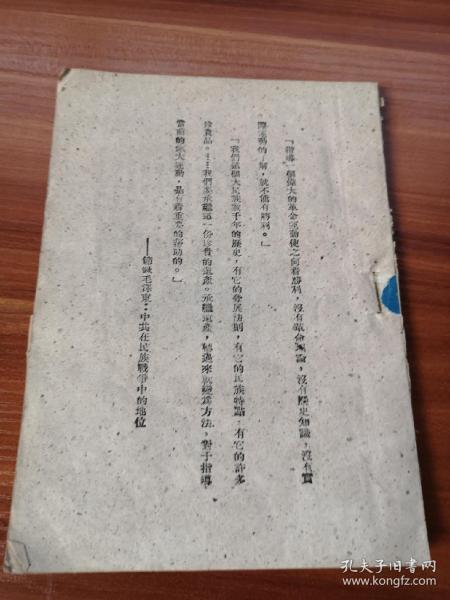 「指導一個偉大的革命運動使之向着勝利，沒有革命理論，沒有歷史知識，沒有實
際運動的了解，就不能有勝利。」
「我們這個大民族數千年的歷史，有它的發展法則，有它的民族特點，有它的許多
珍貴品。……我們要承繼這一份珍貴的遺產。承繼遺產，轉過來就變爲方法，對于指導
當前的偉大運動，是有着重要的帮助的。」
——節錄毛澤東：中共在民族戰爭中的地位
孔夫子旧书网
www.kongfz.com